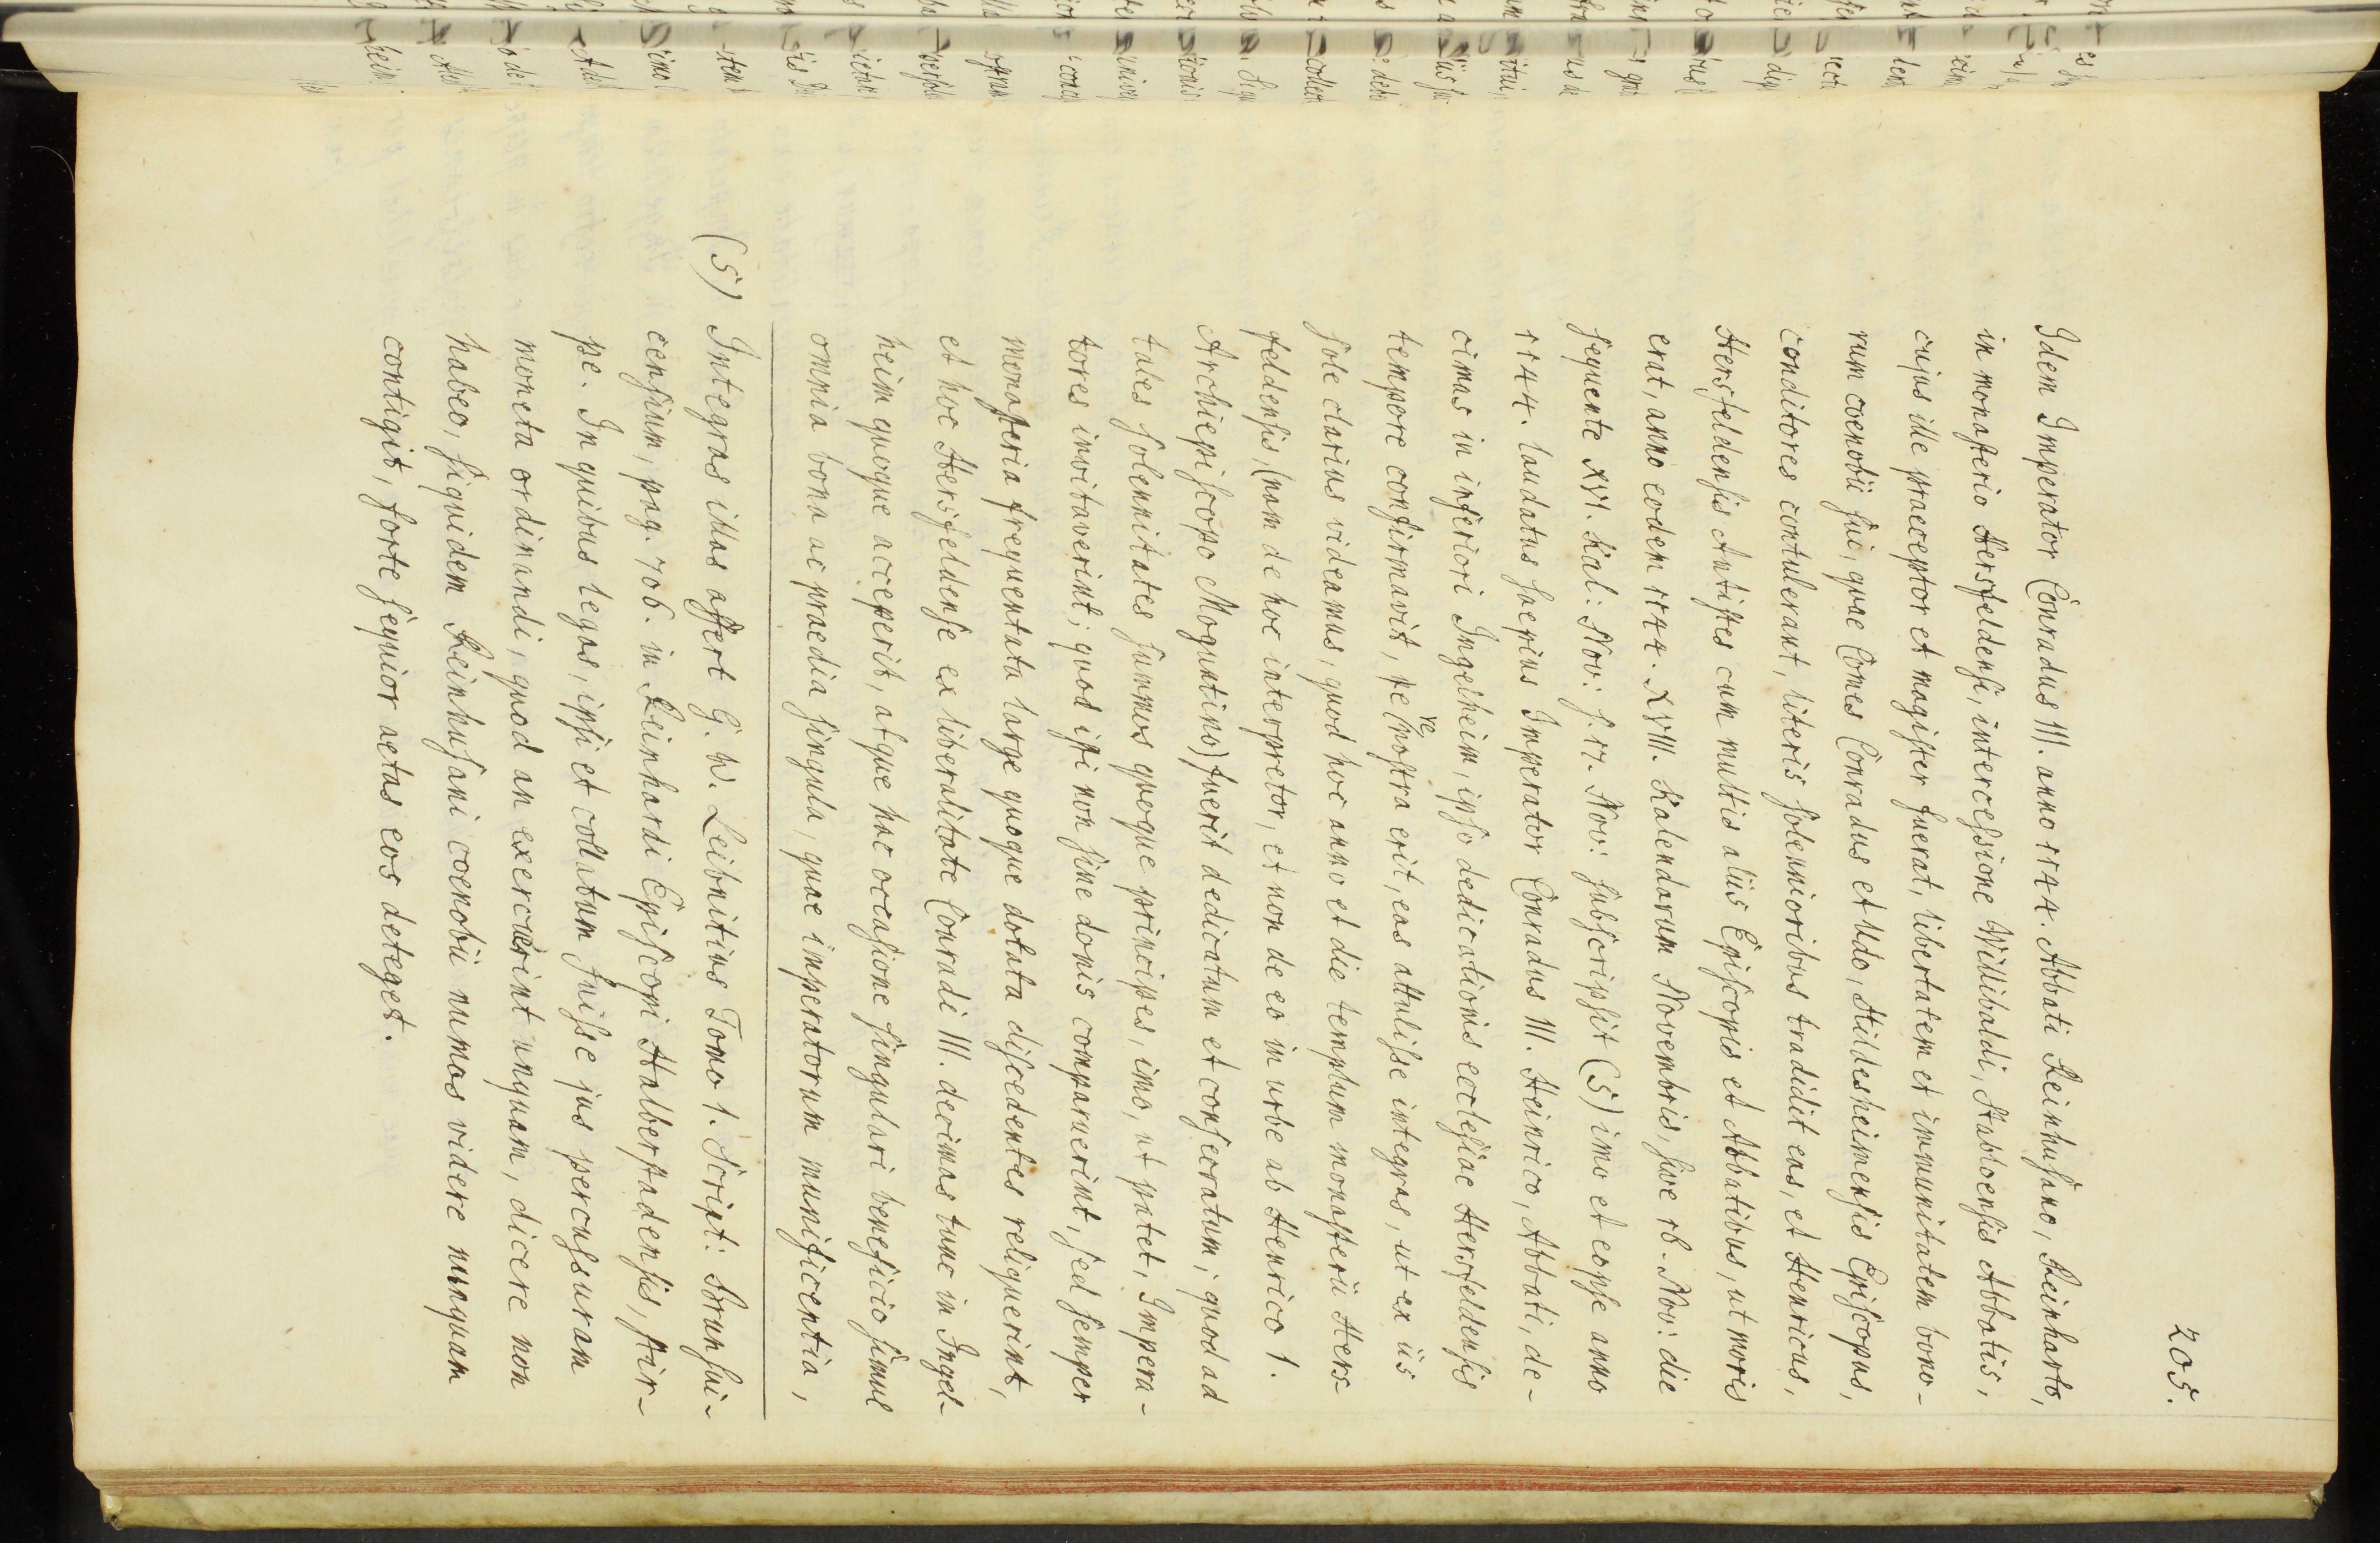 205.
Idem Imperator Conradus III. anno 1144. Abbati Reinhusano, Reinharto,
in monasterio Hersfeldensi, intercessione Willibaldi, Stabloensis Abbatis,
cujus ille praeceptor et magister fuerat, libertatem et immunitatem bono-
rum coenobii sui, quae Comes Conradus et Udo, Hildesheimensis Episcopus,
conditores contulerant, literis solennioribus tradidit eas, et Henricus,
Hersfeldensis Antistes cum multis aliis Episcopis et Abbatibus, ut moris
erat, anno eodem 1144. XVIII. Kalendarum Novembris, sive 16. Nov: die
sequente XVI. Kal: Nov: s. 17. Nov: subscripsit (5) imo et eopse anno
1144. laudatus saepius Imperator Conradus III. Heinrico, Abbati, de-
cimas in inferiori Ingelheim, ipso dedicationis ecclesiae Hersfeldensis
tempore confirmavit, re nostra erit, eas attulisse integras, ut ex iis
sole clarius videamus, quod hoc anno et die templum monasterii Hers-
feldensis, (nam de hoc interpretor, et non de eo in urbe ab Henrico 1.
Archiepiscopo Moguntino) fuerit dedicatum et consecratum; quod ad
tales solennitates summos quoque principes, imo, ut patet, Impera-
tores invitaverint; quod isti non sine donis comparuerint, sed semper
monasteria frequentata large quoque dotata discedentes reliquerint,
et hoc Hersfeldense ex liberalitate Conradi III. decimas tunc in Ingel-
heim quoque acceperit, atque hac occasione singulari beneficio simul
omnia bona ac praedia singula, quae imperatorum munificentia,
(5) Integras illas affert G. W. Leibnitius Tomo 1. Script: Brunsui-
censium, pag. 706. in Reinhardi Episcopi Halberstadensis, stir-
pe. In quibus legas, ipsi et collatum fuisse jus percussuram
moneta ordinandi, quod an exercuerint unquam, dicere non
habeo, siquidem Reinhusani coenobii numos videre nunquam
contigit, forte sequior aetas eos deteget.